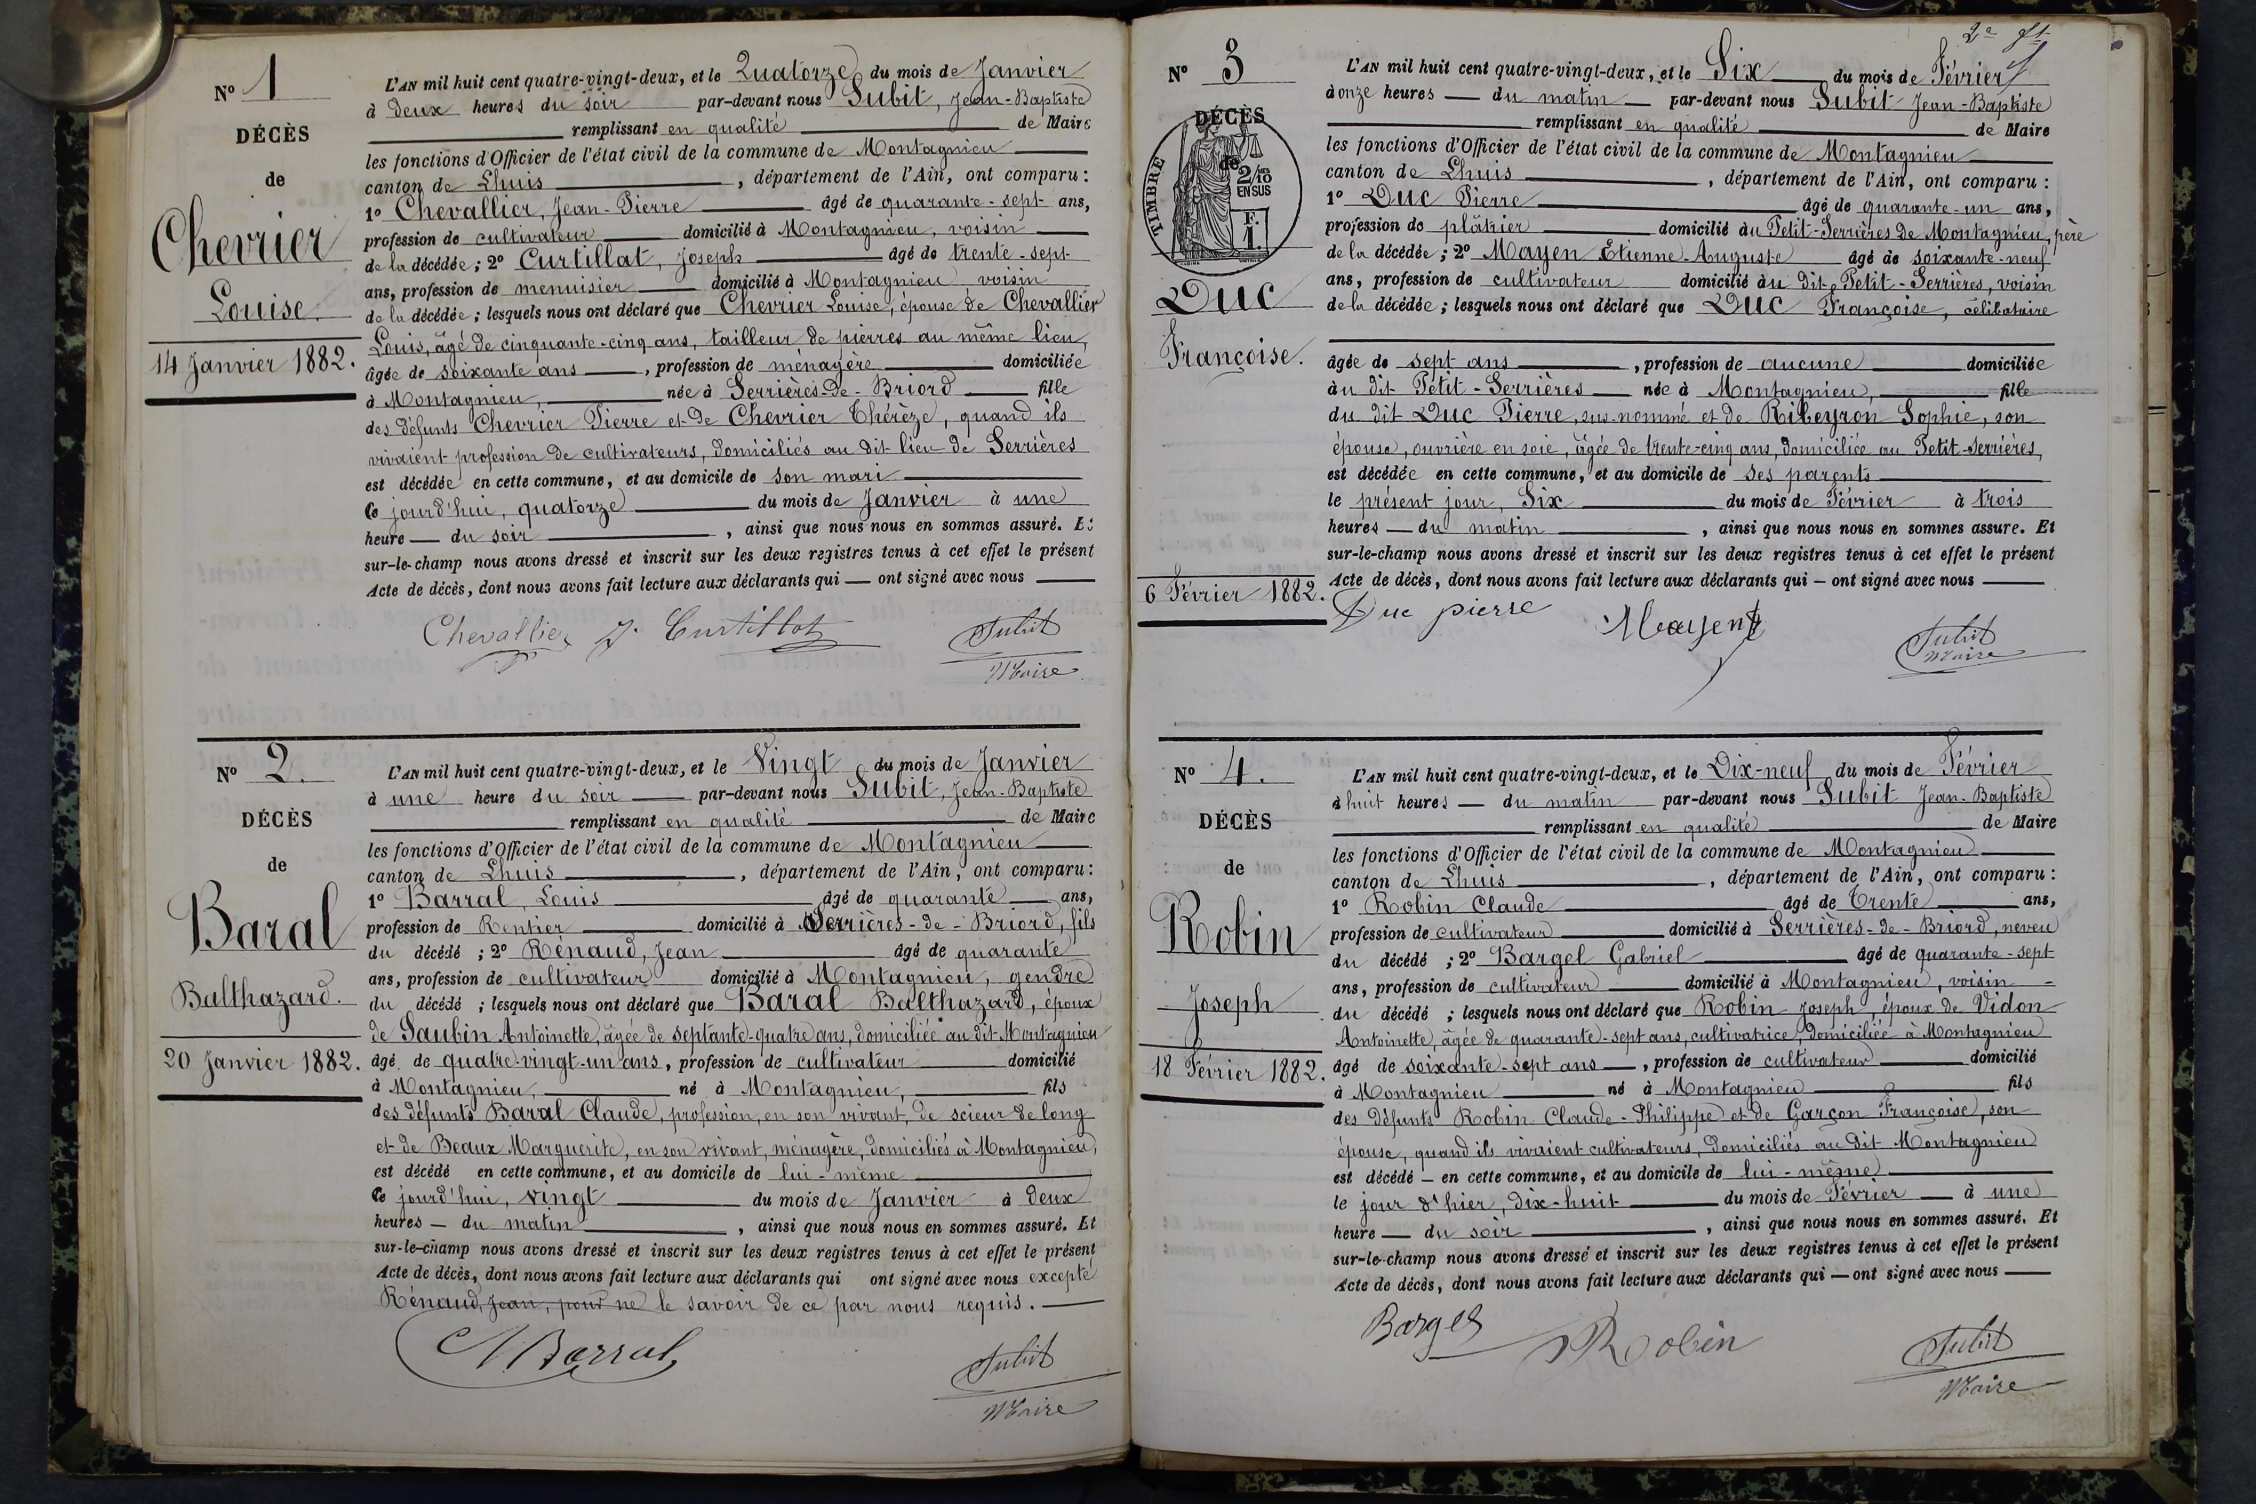 N° 1
DÉCÈS
de
Chevrier
Louise.
14 Janvier 1882.
L'AN mil huit cent quatre-vingt-deux, et le Quatorze du mois de Janvier
à deux heures du soir par-devant nous Subit, Jean-Baptiste
remplissant en qualité de Maire
les fonctions d'Officier de l'état civil de la commune de Montagnieu
canton de Lhuis, département de l'Ain, ont comparu :
1° Chevallier, Jean-Pierre âgé de quarante-sept ans,
profession de cultivateur domicilié à Montagnieu, voisin
de la décédée ; 2° Curtillat, Joseph âgé de trente-sept
ans, profession de menuisier domicilié à Montagnieu voisin
de la décédée ; lesquels nous ont déclaré que Chevrier Louise, épouse de Chevallier
Louis, âgé de cinquante-cinq ans, tailleur de pierres au même lieu,
âgée de soixante ans, profession de ménagère domiciliée
à Montagnieu, née à Serrières-de-Briord fille
des défunts Chevrier Pierre et de Chevrier Thérèze, quand ils
vivaient profession de cultivateurs, domiciliés au dit lieu de Serrières
est décédée en cette commune, et au domicile de son mari
Ce jourd'hui, quatorze du mois de Janvier à une
heure du soir, ainsi que nous nous en sommes assuré. Et
sur-le-champ nous avons dressé et inscrit sur les deux registres tenus à cet effet le présent
Acte de décès, dont nous avons fait lecture aux déclarants qui ont signé avec nous
Chevallier J. Curtillat Subit
Maire
N° 2.
DÉCÈS
de
Baral
Balthazard.
20 Janvier 1882.
L'AN mil huit cent quatre-vingt-deux, et le Vingt du mois de Janvier
à une heure du soir par-devant nous Subit, Jean-Baptiste
remplissant en qualité de Maire
les fonctions d'Officier de l'état civil de la commune de Montagnieu
canton de Lhuis, département de l'Ain, ont comparu :
1° Barral, Louis âgé de quarante ans,
profession de Rentier domicilié à Serrières-de-Briord, fils
du décédé ; 2° Rénaud, Jean âgé de quarante
ans, profession de cultivateur domicilié à Montagnieu, gendre
du décédé ; lesquels nous ont déclaré que Baral Balthazard, époux
de Saubin Antoinette, âgée de septante-quatre ans, domiciliée au dit Montagnieu
âgé de quatre-vingt-un ans, profession de cultivateur domicilié
à Montagnieu, né à Montagnieu, fils
des défunts Baral Claude, profession, en son vivant, de scieur de long
et de Beaux Marguerite, en son vivant, ménagère, domiciliés à Montagnieu,
est décédé en cette commune, et au domicile de lui-même
Ce jourd'hui, vingt du mois de Janvier à deux
heures du matin, ainsi que nous nous en sommes assuré. Et
sur-le-champ nous avons dressé et inscrit sur les deux registres tenus à cet effet le présent
Acte de décès, dont nous avons fait lecture aux déclarants qui ont signé avec nous excepté
Rénaud, Jean, pour ne le savoir de ce par nous requis.
Barral Subit
Maire
2e ft
N° 3
DÉCÈS
de
TIMBRE
2/10
EN SUS
F.
1.
Duc
Françoise.
6 Février 1882.
L'AN mil huit cent quatre-vingt-deux, et le Six du mois de Février
à onze heures du matin par-devant nous Subit Jean-Baptiste
remplissant en qualité de Maire
les fonctions d'Officier de l'état civil de la commune de Montagnieu
canton de Lhuis, département de l'Ain, ont comparu :
1° Duc Pierre âgé de quarante-un ans,
profession de plâtrier domicilié au Petit-Serrières de Montagnieu, père
de la décédée ; 2° Mayen Étienne-Auguste âgé de soixante-neuf
ans, profession de cultivateur domicilié au dit Petit-Serrières, voisin
de la décédée ; lesquels nous ont déclaré que Duc Françoise, célibataire
âgée de sept ans, profession de aucune domiciliée
au dit Petit-Serrières née à Montagnieu, fille
du dit Duc Pierre, sus-nommé et de Ribeyron Sophie, son
épouse, ouvrière en soie, âgée de trente-cinq ans, domiciliée au Petit-Serrières,
est décédée en cette commune, et au domicile de ses parents
le présent jour, Six du mois de Février à trois
heures du matin, ainsi que nous nous en sommes assuré. Et
sur-le-champ nous avons dressé et inscrit sur les deux registres tenus à cet effet le présent
Acte de décès, dont nous avons fait lecture aux déclarants qui ont signé avec nous
Duc pierre Mayen Subit
Maire
N° 4.
DÉCÈS
de
Robin
Joseph
18 Février 1882.
L'AN mil huit cent quatre-vingt-deux, et le Dix-neuf du mois de Février
à huit heures du matin par-devant nous Subit Jean-Baptiste
remplissant en qualité de Maire
les fonctions d'Officier de l'état civil de la commune de Montagnieu
canton de Lhuis, département de l'Ain, ont comparu :
1° Robin Claude âgé de Trente ans,
profession de cultivateur domicilié à Serrières-de-Briord, neveu
du décédé ; 2° Bargel Gabriel âgé de quarante-sept
ans, profession de cultivateur domicilié à Montagnieu, voisin
du décédé ; lesquels nous ont déclaré que Robin Joseph, époux de Vidon
Antoinette, âgée de quarante-sept ans, cultivatrice, domiciliée à Montagnieu
âgé de soixante-sept ans, profession de cultivateur domicilié
à Montagnieu né à Montagnieu fils
des défunts Robin Claude-Philippe et de Garçon Françoise, son
épouse, quand ils vivaient cultivateurs, domiciliés au dit Montagnieu
est décédé en cette commune, et au domicile de lui-même
le jour d'hier, dix-huit du mois de Février à une
heure du soir, ainsi que nous nous en sommes assuré. Et
sur-le-champ nous avons dressé et inscrit sur les deux registres tenus à cet effet le présent
Acte de décès, dont nous avons fait lecture aux déclarants qui ont signé avec nous
Bargel Robin Subit
Maire